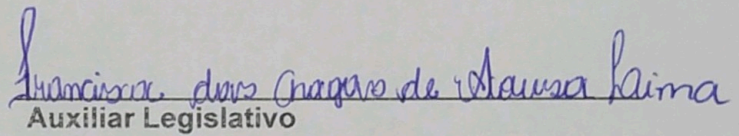 Francisca das Chagas de Sousa Lima
Auxiliar Legislativo